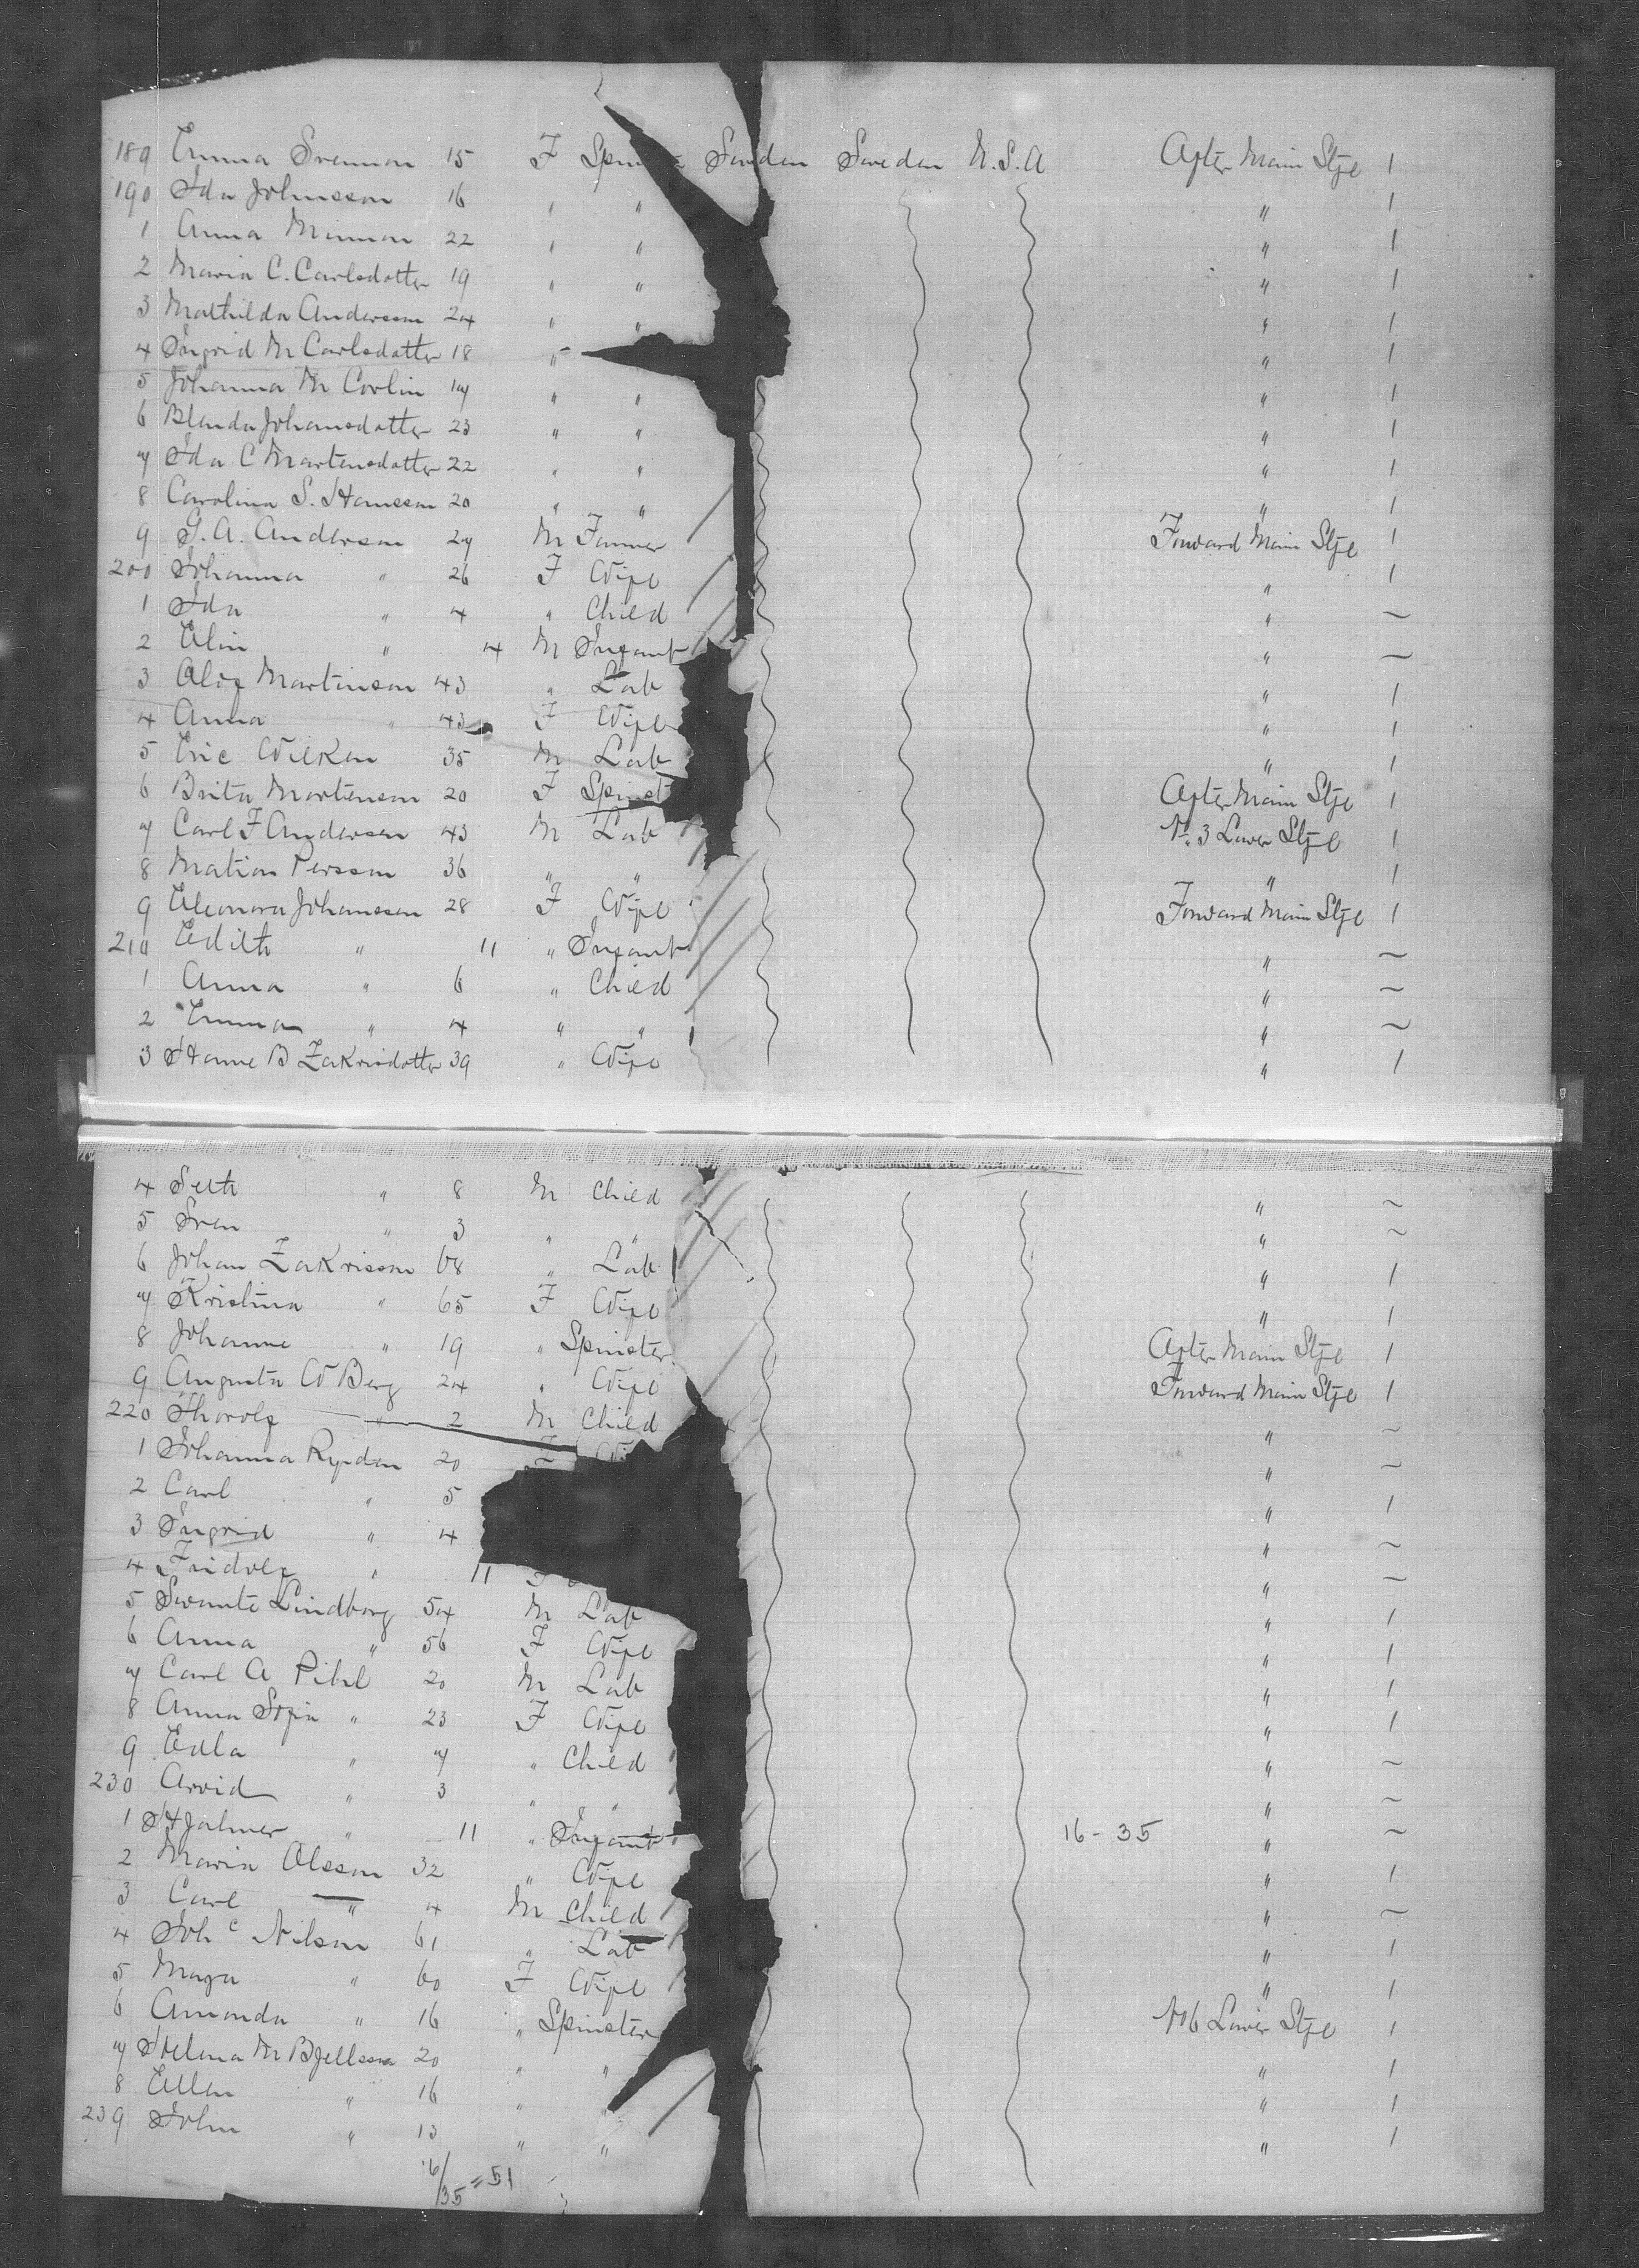 189 Emma Svenson 15 F Spin Sweden Sweden U.S.A After Main Stge 1
190 Ida Johnsson 16 " " " 1
1 Anna Monson 22 " " " 1
2 Maria C. Carlsdotter 19 " " " 1
3 Mathilda Andersson 24 " " " 1
4 Ingrid M Carlsdotter 18 " " 1
5 Johanna M Corlin 19 " " " 1
6 Blenda Johansdotter 23 " " " 1
7 Ida C Martensdotter 22 " " " 1
8 Carolina S. Hansson 20 " " " 1
9 G. A. Anderson 27 M Farmer Forward Main Stge 1
200 Johanna " 26 F Wife " 1
1 Ida " 4 " Child " ~
2 Elin " 4 M Infant " ~
3 Olof Martinson 43 " Lab " 1
4 Anna " 43 F Wife " 1
5 Eric Wilken 35 M Lab " 1
6 Brita Mortenson 20 F Spinst After Main Stge 1
7 Carl F Anderson 43 M Lab No. 3 Lower Stge 1
8 Matias Persson 36 " " " 1
9 Eleonora Johansson 28 F Wife Forward Main Stge 1
210 Edith " 11 " Infant " ~
1 Anna " 6 " Child " ~
2 Emma " 4 " " " ~
3 Hanne B Zakrisdotter 39 " Wife " 1
4 Seth " 8 M Child " ~
5 Sven " 3 " " " ~
6 Johan Zakrisson 68 " Lab " 1
7 Kristina " 65 F Wife " 1
8 Johanne " 19 " Spinster After Main Stge 1
9 Augusta W Berg 24 " Wife Forward Main Stge 1
220 Thorolf " 2 M Child " ~
1 Johanna Ryden 20 F Wi " ~
2 Carl " 5 " 1
3 Ingrid " 4 " ~
4 Fridolf " 11 F " ~
5 Swante Lindborg 54 M Lab " 1
6 Anna " 56 F Wife " 1
7 Carl A Pihl 20 M Lab " 1
8 Anna Sofia " 23 F Wife " 1
9 Edla " 7 " Child " ~
230 Arvid " 3 " " " ~
1 Hjalmer " 11 " Infant 16-35 " ~
2 Maria Olsson 32 " Wife " 1
3 Carl " 4 M Child " ~
4 Joh c Nilson 61 " Lab " 1
5 Maya " 60 F Wife " 1
6 Amanda " 16 " Spinster No 6 Lower Stge 1
7 Helena M Bjellsson 20 " " " 1
8 Ellen " 16 " " " 1
239 John " 13 " " " 1
16/35 = 51